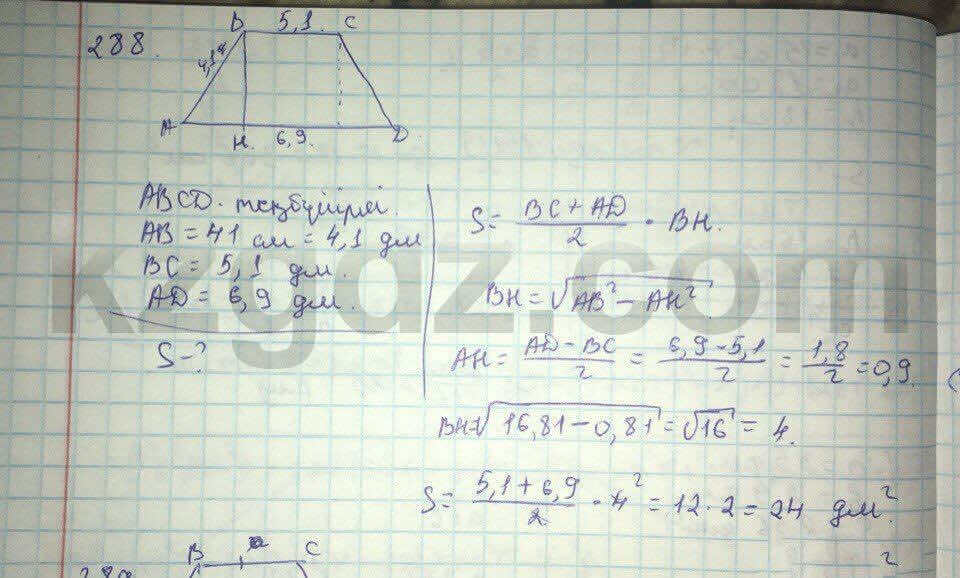 288.
B 5,1 C
4,1
A H. 6,9. D
ABCD. теңбүйірлі.
AB = 41 см = 4,1 дм
BC = 5,1 дм.
AD = 6,9 дм.
S-?
S = (BC + AD)/2 · BH.
BH = √(AB² - AH²).
AH = (AD - BC)/2 = (6,9 - 5,1)/2 = 1,8/2 = 0,9.
BH = √(16,81 - 0,81) = √16 = 4.
S = (5,1 + 6,9)/2 · 4² = 12 · 2 = 24 дм².
2
B a C
289
kzgdz.com